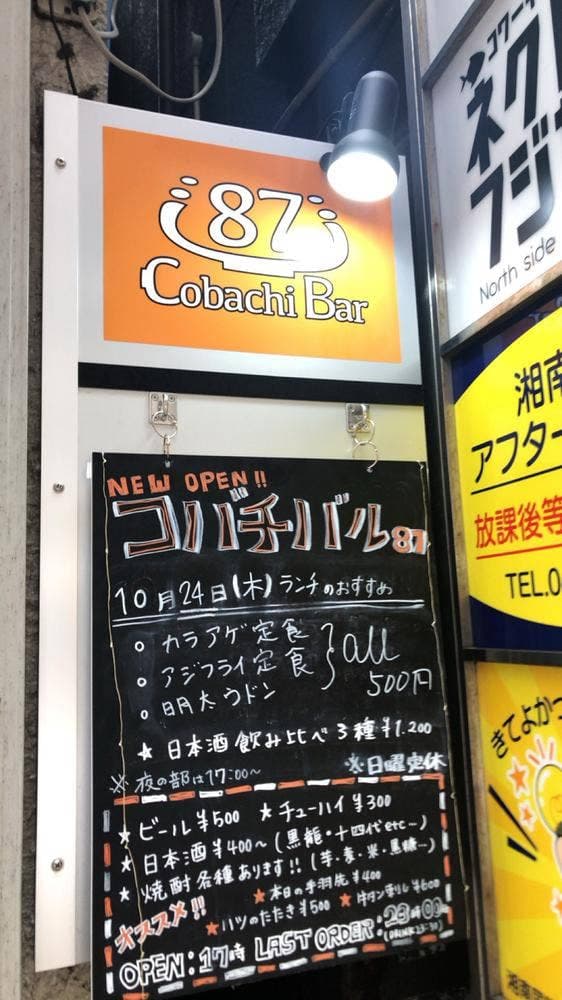 87
Cobachi Bar
NEW OPEN!!
コバチバル87
10月24日(木)ランチのおすすめ
○カラアゲ定食
○アジフライ定食
○明太ウドン
}all
500円
★日本酒飲み比べ3種¥1.200
※夜の部は17:00~
※日曜定休
★ビール¥500 ★チューハイ¥300
★日本酒¥400~(黒龍・十四代etc…)
★焼酎各種あります!!(芋・麦・米・黒糖…)
オススメ!!
★本日の手羽先¥400
★ハツのたたき¥500 ★牛タン串リル¥600
OPEN:17時 LAST ORDER:23時00
(DRINK23:30)
コワー
ネク
フジ
North side
湘南
アフター
放課後等
TEL.0
きてよかっ
湘南